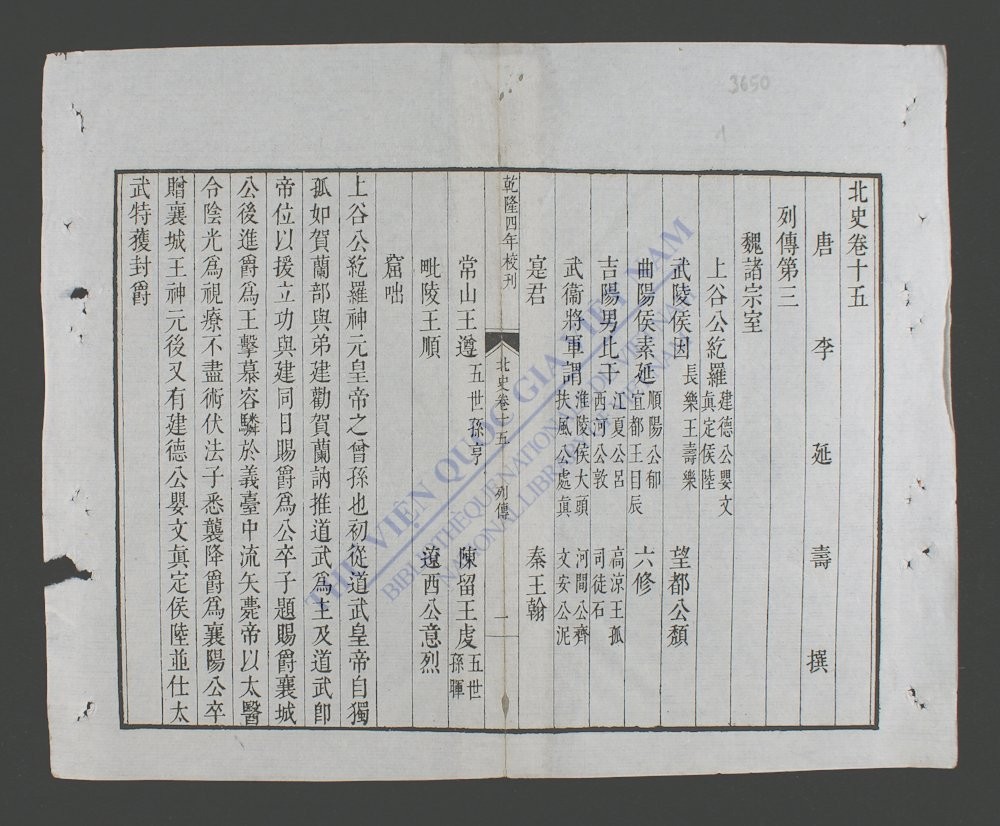 3650
1
北史卷十五
唐 李 延 壽 撰
列傳第三
魏諸宗室
上谷公紇羅 建德公嬰文 真定侯陸
武陵侯因 長樂王壽樂 望都公頹
曲陽侯素延 順陽公郁 宜都王目辰 六修
吉陽男比干 江夏公呂 西河公敦 高涼王孤 司徒石
武衞將軍謂 淮陵侯大頭 扶風公處真 河間公齊 文安公泥
寔君 秦王翰
乾隆四年校刊
北史卷十五 列傳 一
常山王遵 五世孫亨 陳留王虔 五世孫暉
毗陵王順 遼西公意烈
窟咄
上谷公紇羅神元皇帝之曾孫也初從道武皇帝自獨
孤如賀蘭部與弟建勸賀蘭訥推道武為主及道武卽
帝位以援立功與建同日賜爵為公卒子題賜爵襄城
公後進爵為王擊慕容驎於義臺中流矢薨帝以太醫
令陰光為視療不盡術伏法子悉襲降爵為襄陽公卒
贈襄城王神元後又有建德公嬰文真定侯陸並仕太
武特獲封爵
THƯ VIỆN QUỐC GIA VIỆT NAM
BIBLIOTHÈQUE NATIONALE DU VIETNAM
NATIONAL LIBRARY OF VIETNAM